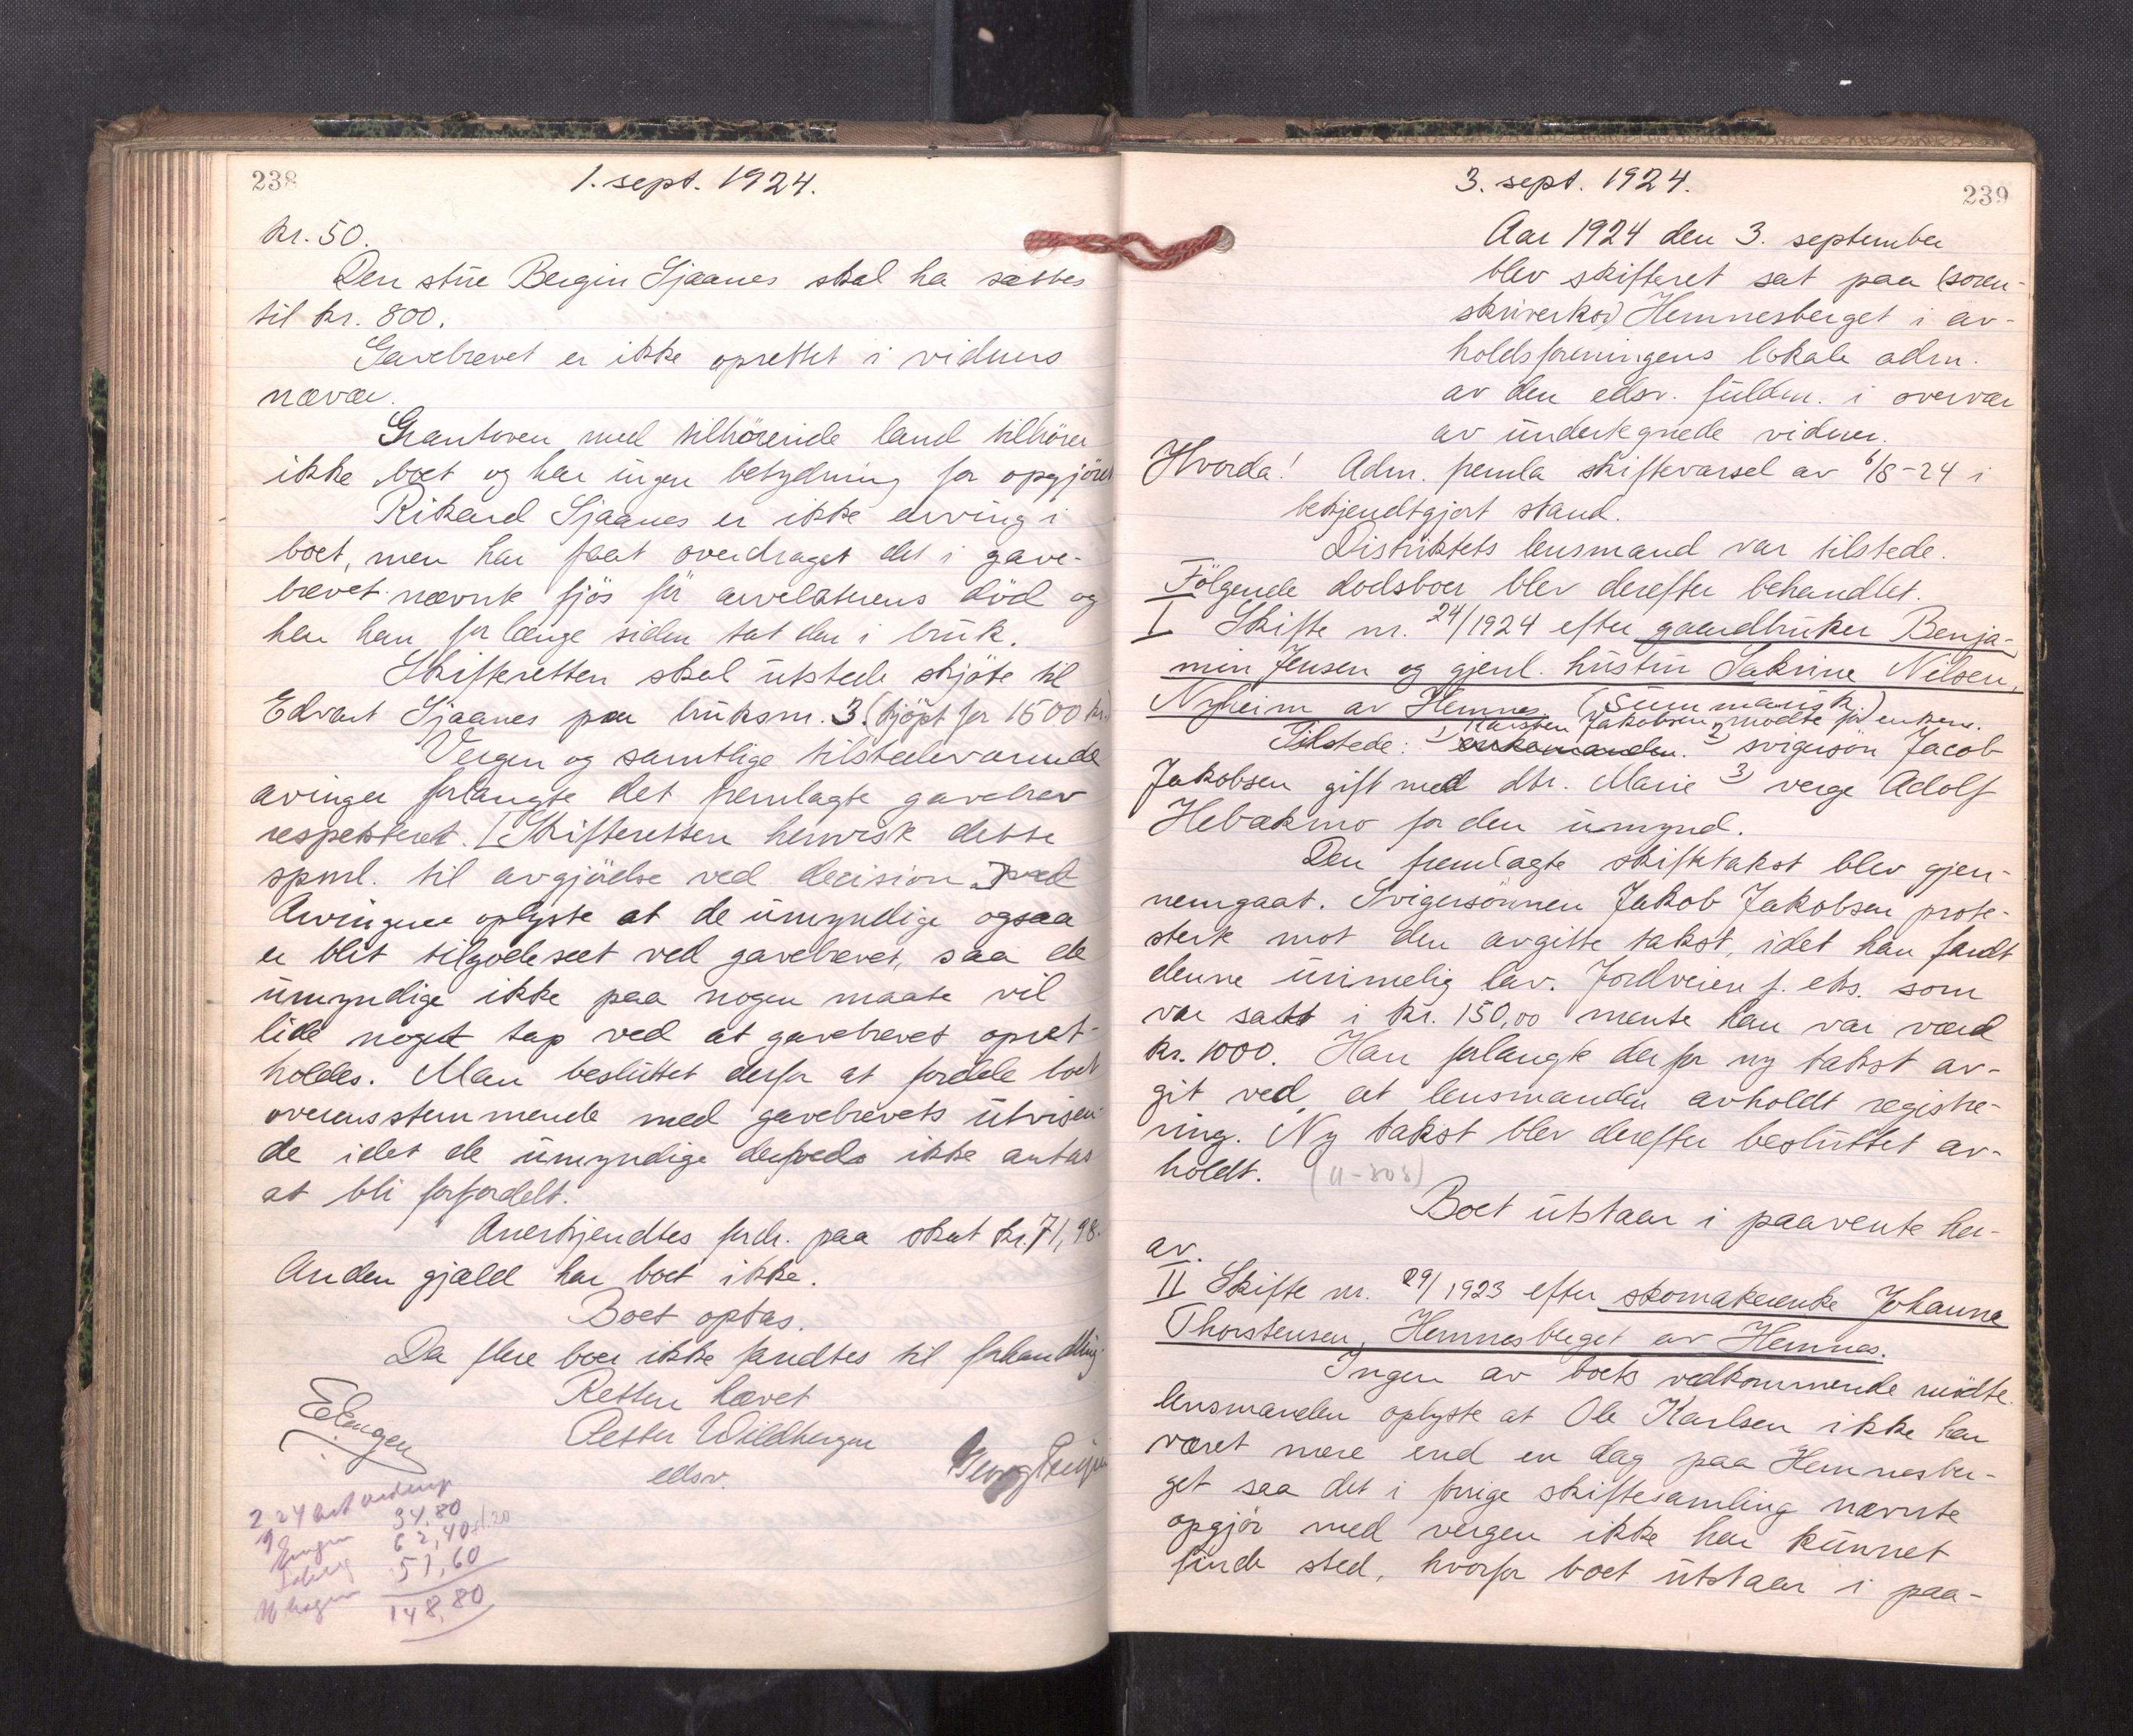 238
1. sept. 1924.
kr. 50.
Den stue Bergin Sjaanes skal ha sættes
til kr. 800.
Gavebrevet er ikke oprettet i vidners
nærvær.
Grantoven med tilhörende land tilhörer
ikke boet og har ingen betydning for opgjöret
Rikard Sjaanes er ikke arving i
boet, men har faat overdraget det i gave-
brevet nævnte fjös för arvelaterens död og
har han for længe siden tat den i bruk.
Skifteretten skal utstede skjöte til
Edvart Sjaanes paa bruksnr. 3. (kjöpt for 1500 kr.)
Vergen og samtlige tilstedeværende
arvinger forlangte det fremlagte gavebrev
respektert. [Skifteretten henviste dette
spml. til avgjörelse ved decision.]
Arvingerne oplyste at de umyndige ogsaa
er blit tilgodeseet ved gavebrevet, saa de
umyndige ikke paa nogen maate vil
lide noget tap ved at gavebrevet opret-
holdes. Man besluttet derfor at fordele boet
overensstemmende med gavebrevets utvisen-
de idet de umyndige derved ikke antas
at bli forfordelt.
Anerkjendtes fordr. paa skat kr. 71,98.
Anden gjæld har boet ikke.
Boet optas.
Da flere boer ikke fandtes til forhandling.
Retten hævet
Petter Wildhagen
edsv.
34,80
62,40
51,60
148,80
3. sept. 1924.
239
Aar 1924 den 3. september
blev skifteret sat paa (soren-
skriverkor) Hemnesberget i av-
holdsforeningens lokale adm.
av den edsv. fuldm. i overvær
av undertegnede vidner.
Hvorda! Adm. fremla skiftevarsel av 6/8-24 i
bekjendtgjort stand.
Distriktets lensmand var tilstede.
Fölgende dodsboer blev derefter behandlet.
I Skifte nr. 24/1924 efter gaardbruker Benja-
min Jensen og gjenl. hustru Sakrine Nilsen,
Nyheim av Hemnes. (Summarisk)
Karsten Jakobsen mödte for enken.
Tilstede: 1) enkemanden. 2) svigersön Jacob
Jakobsen gift med dtr. Marie 3) verge Adolf
Hebakmo for den umynd.
Den fremlagte skiftetakst blev gjen-
nemgaat. Svigersönnen Jakob Jakobsen prote-
sterte mot den avgitte takst, idet han fandt
denne urimelig lav. Jordveien f. eks. som
var satt i kr. 150,00 mente han var værd
kr. 1000. Han forlangte derfor ny takst av-
git ved at lensmanden avholdt registre-
ring. Ny takst blev derefter besluttet av-
holdt. (11-303)
Boet utstaar i paavente her-
av.
II Skifte nr. 29/1923 efter skomakerenke Johanna
Thorstensen, Hemnesberget av Hemnes.
Ingen av boets vedkommende mödte.
lensmanden oplyste at Ole Karlsen ikke har
været mere end en dag paa Hemnesber-
get saa det i forrige skiftesamling nævnte
opgjör med vergen ikke har kunnet
finde sted, hvorfor boet utstaar i paa-